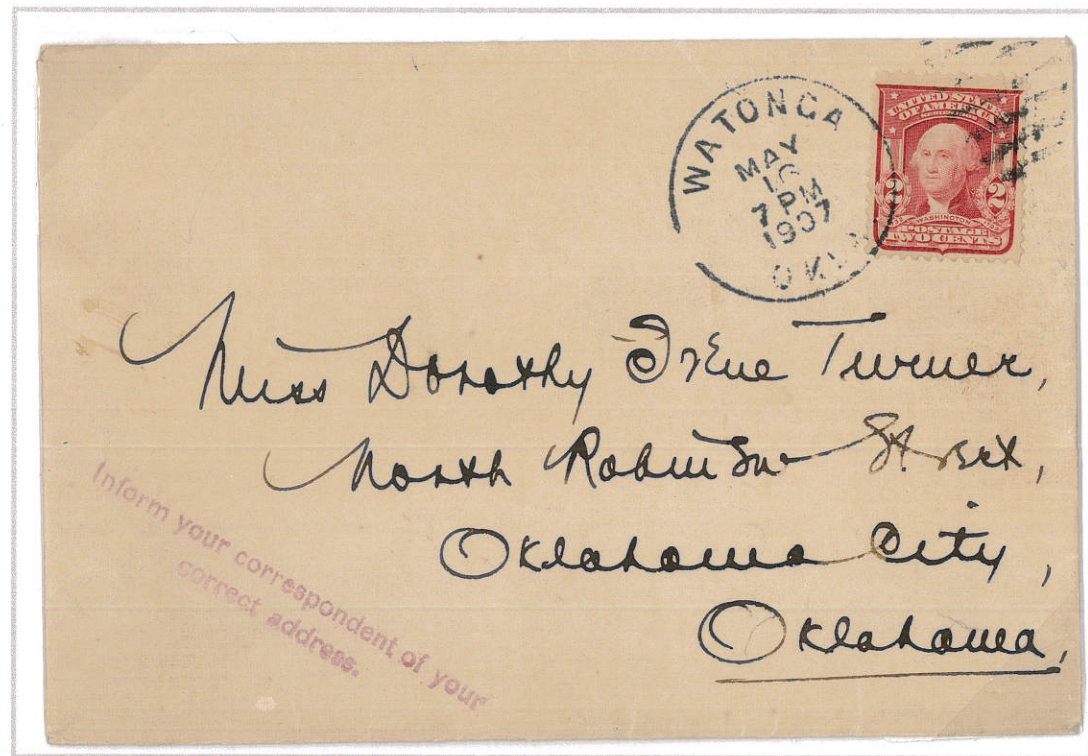 WATONGA
MAY
16
7 PM
1907
OKLA
UNITED STATES
OF AMERICA
2 2
WASHINGTON
POSTAGE
TWO CENTS
Miss Dorothy Irene Turner,
North Robinson Street,
Oklahoma City,
Oklahoma,
Inform your correspondent of your
correct address.